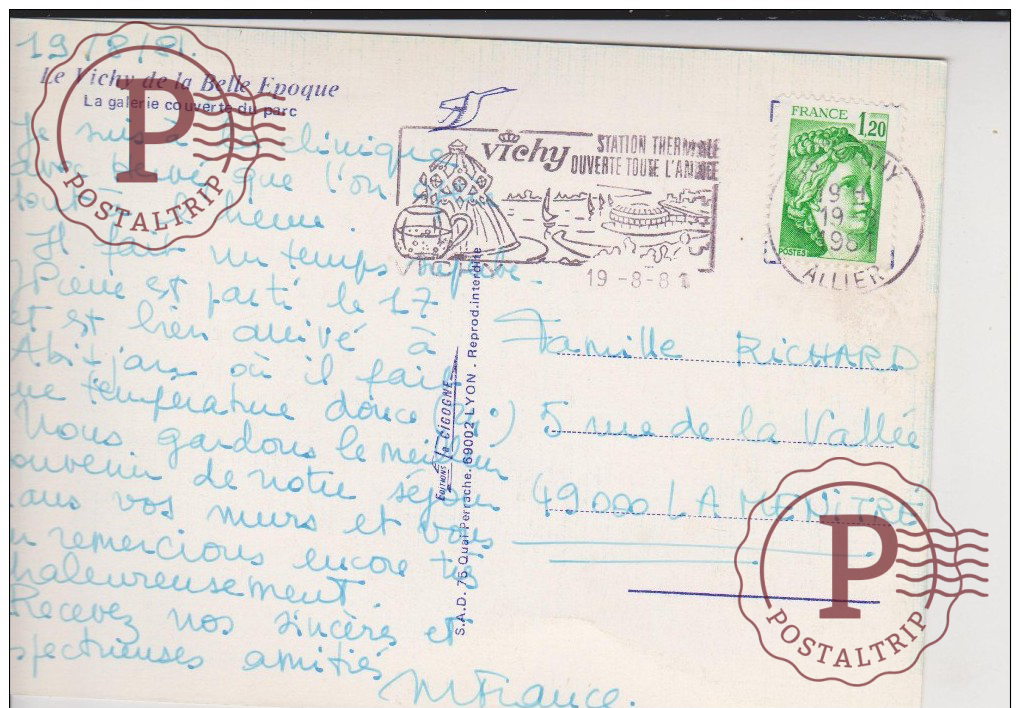 19/8/81.
Le Vichy de la Belle Epoque
La galerie couverte du parc
Je suis à la clinique
que l'on
Il fait un temps superbe.
Pierre est parti le 17
et est bien arrivé à
Abidjan où il fait
une température douce
Nous gardons le meilleur
souvenir de notre séjour
dans vos murs et vous
en remercions encore très
chaleureusement.
Recevez nos sincères et
affectueuses amitiés
M France.
EDITIONS La CIGOGNE
S.A.D. 75 Quai Perrache. 69002 LYON - Reprod. interdite
Vichy
STATION THERMALE
OUVERTE TOUTE L'ANNEE
19-8-81
FRANCE 1,20
POSTES
19 H
19
1981
ALLIER
Famille RICHARD
5 rue de la Vallée
49000 LA MENITRÉ
P
POSTALTRIP
P
POSTALTRIP